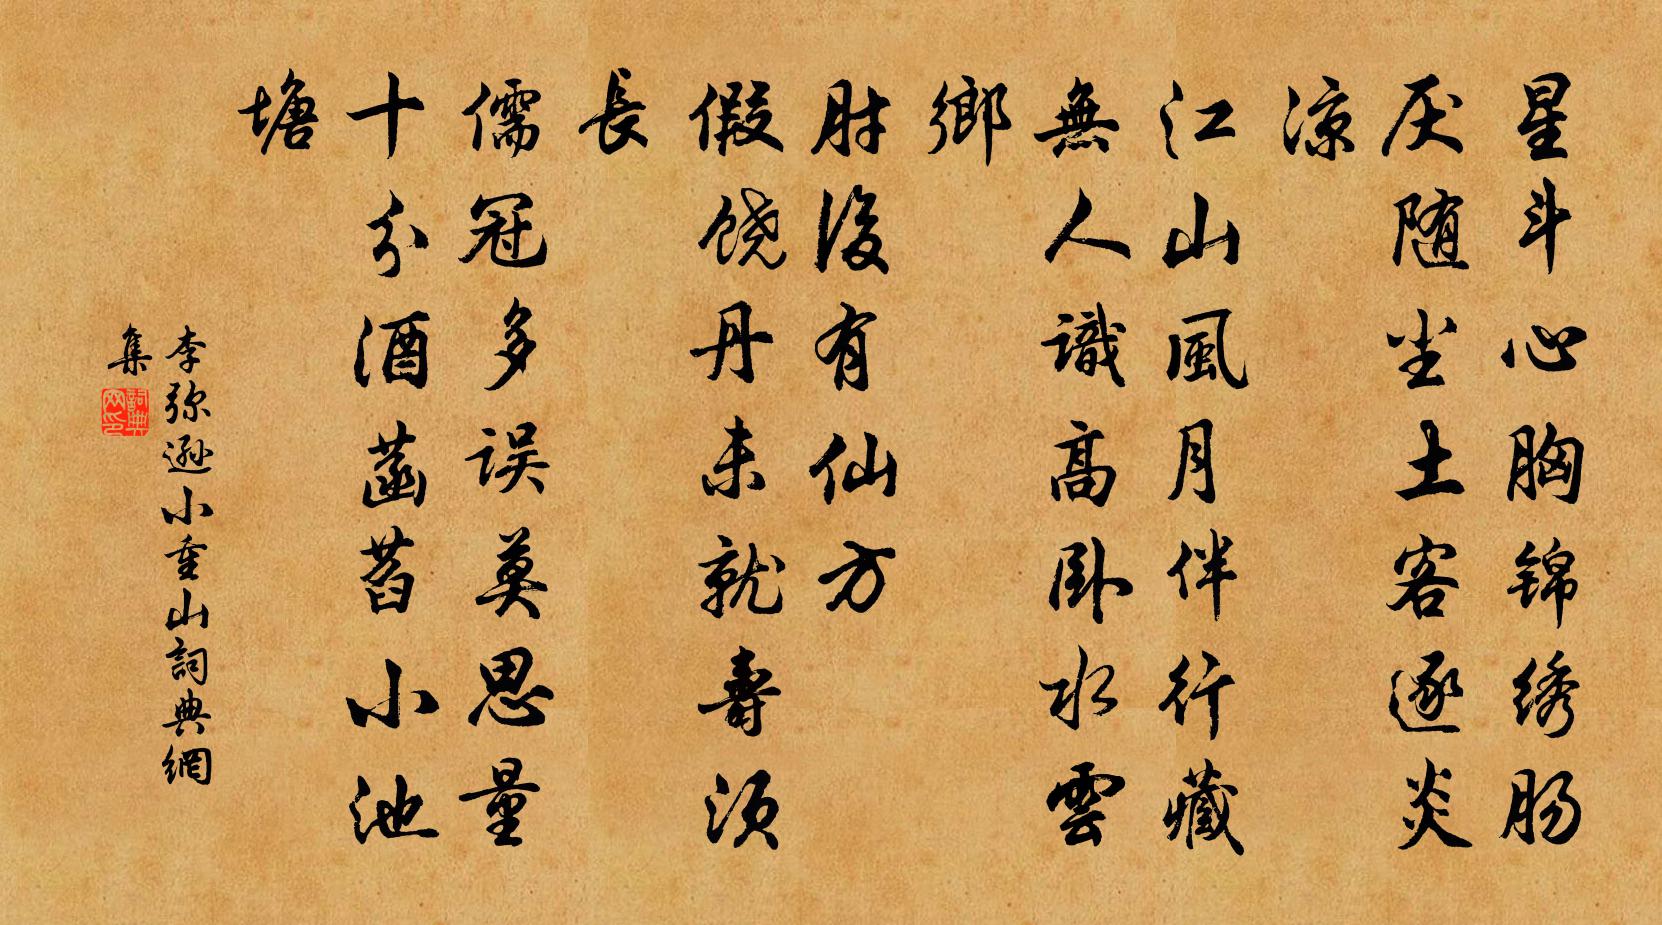 星斗心胸锦绣肠
厌随尘土客逐炎
凉
江山風月伴行藏
無人識高卧水雲
鄉
肘後有仙方
假饶丹未就壽须
長
儒冠多误莫思量
十分酒菡萏小池
塘
李弥遜小重山詞典網
集
詞典網印